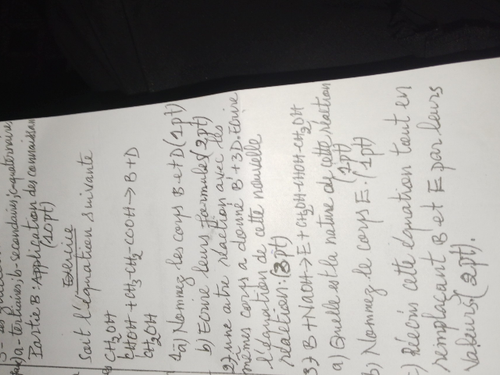 a-tertiaires, b-secondaires, c-quaternaires
Partie B: Application des connaissan
(10pt)
Exercice
Soit l'équation suivante
CH2OH
CHOH + CH3-CH2-COOH → B+D
CH2OH
1a) Nommez les corps B et D (1pt)
b) Ecrire leurs formules (2pt)
2) une autre réaction avec les
mêmes corps a donné B+3D. Ecrire
l'équation de cette nouvelle
réaction: (3pt)
3) B+NaOH → E + CH2OH-CHOH-CH2OH
a) Quelle est la nature de cette réaction
(1pt)
b) Nommez le corps E. (1pt)
c) Réécris cette équation tout en
remplaçant B et E par leurs
Valeurs (2pt).